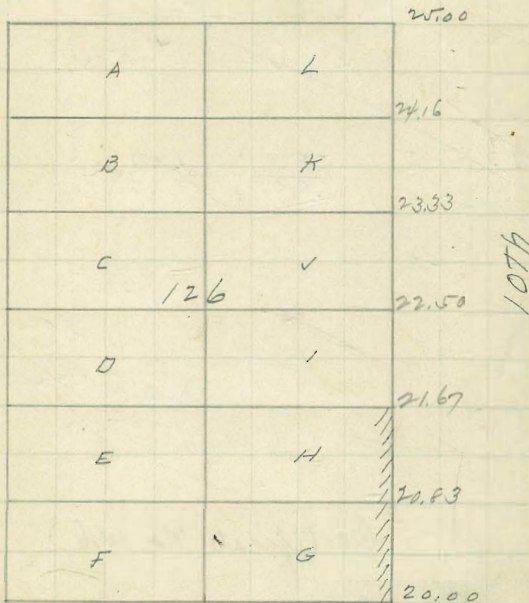 25.00
A L
24.16
B K
23.33
C J
10TH
126
22.50
D I
21.67
E H
20.83
F G
20.00